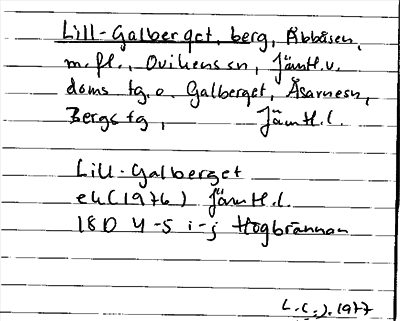 Lill-Galberget, berg, Åbbåsen,
m.fl., Ovikens sn, Jämtl.v.
doms tg. o. Galberget, Åsarnes sn,
Bergs tg, Jämtl.l.
Lill-Galberget
ek (1976) Jämtl.l.
18D 4-5 i-j Högbrännan
L.C.J. 1977